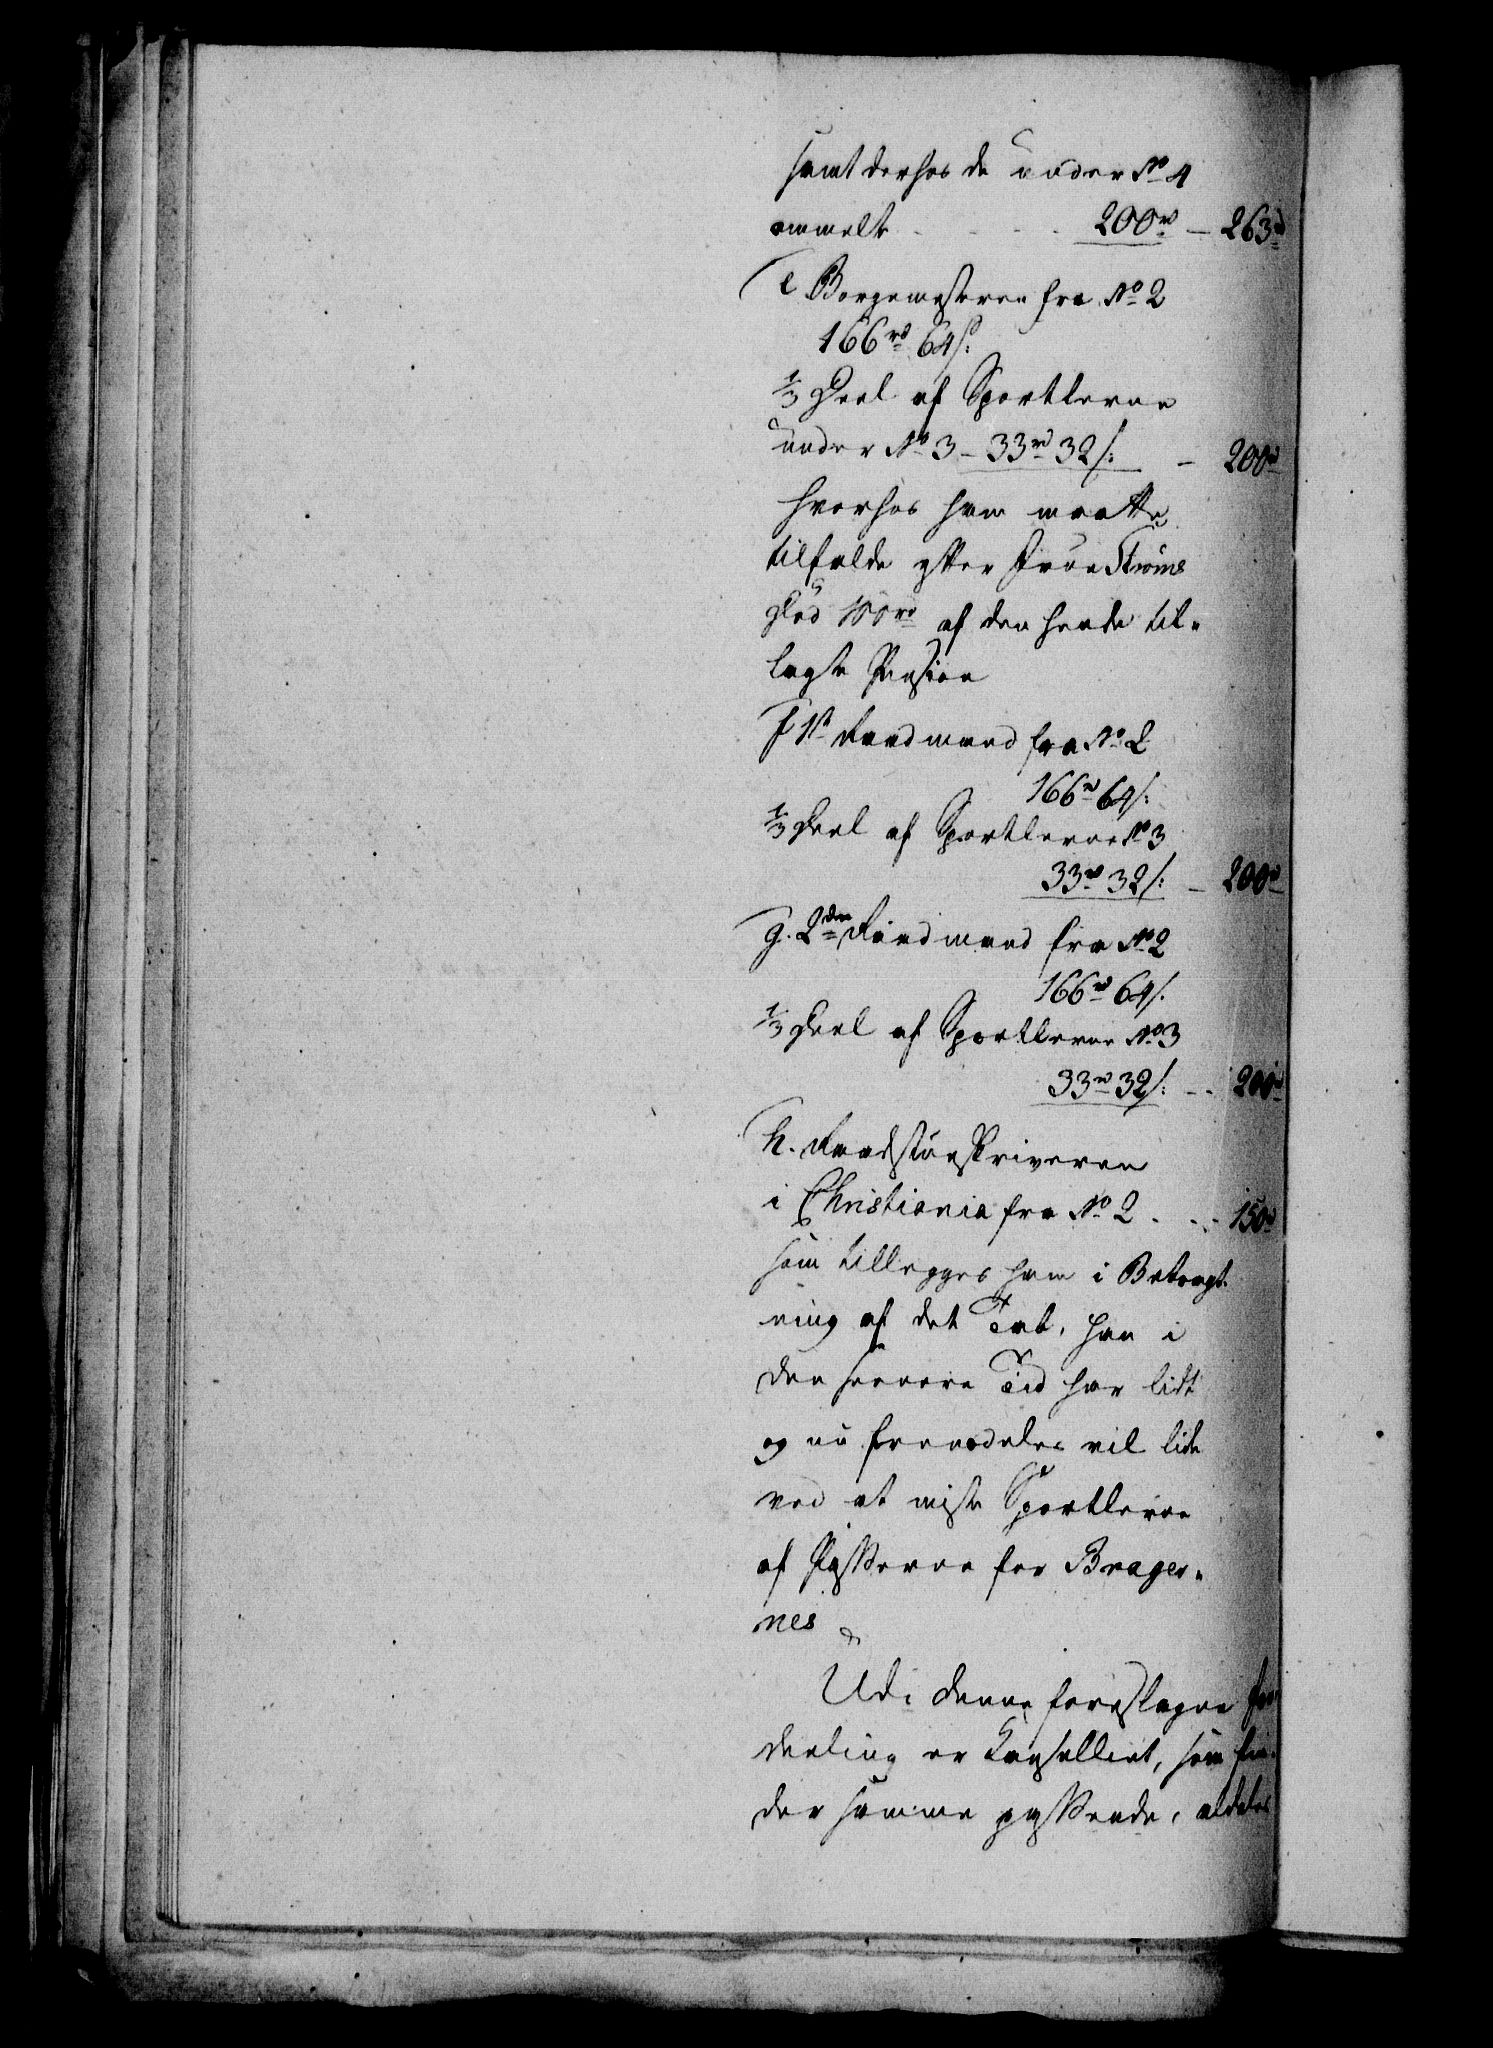 samt derhos de under No 4
ommelte - - - - 200rd - 263rd
e Borgemesteren fra No 2
166rd 64s:
1/3 Deel af Sportlerne
under No 3 - 33rd 32s: - 200rd
hvorhos ham maatte
tilfalde efter Frue Strøms
Død 100rd af den hende til-
lagte Pension
f 1ste Raadmand fra No 2
166rd 64s:
1/3 Deel af Sportlerne No 3
33rd 32s: - 200rd
g. 2den Raadmand fra No 2
166rd 64s.
1/3 Deel af Sportlerne No 3
33rd 32s: - - 200rd
h. Raadstueskriveren
i Christiania fra No 2 - - - 150rd
som tillegges ham i Betragt-
ning af det Tab, han i
den senere Tid har lidt
og nu fremdeles vil lide
ved at miste Sportlerne
af Passerne for Brager-
nes
Udi denne foreslagne For-
deeling er Cancelliet, som fin-
der samme passende, aldeles